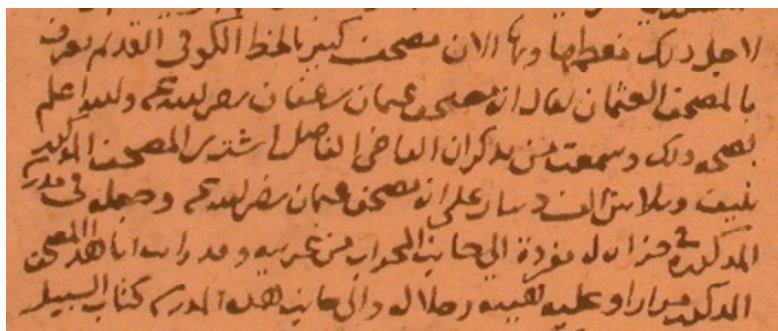 لاجل ذلك معظمها وبها الان مصحف كبير بالخط الكوفي القديم يعرف
بالمصحف العثماني يقال انه مصحف عثمان بن عفان رضي الله عنه والله اعلم
بصحة ذلك وسمعت من يذكر ان القاضي الفاضل اشترى المصحف المذكور
بنيف وثلاثين الف دينار على انه مصحف عثمان رضي الله عنه وجعله في مدرسته
المذكورة في خزانة له مفردة الى جانب المحراب من غربيه وقد رايت انا هذا المصحف
المذكور مرارا وعليه هيبة وجلالة والى جانب هذه المدرسة كتاب السبيل